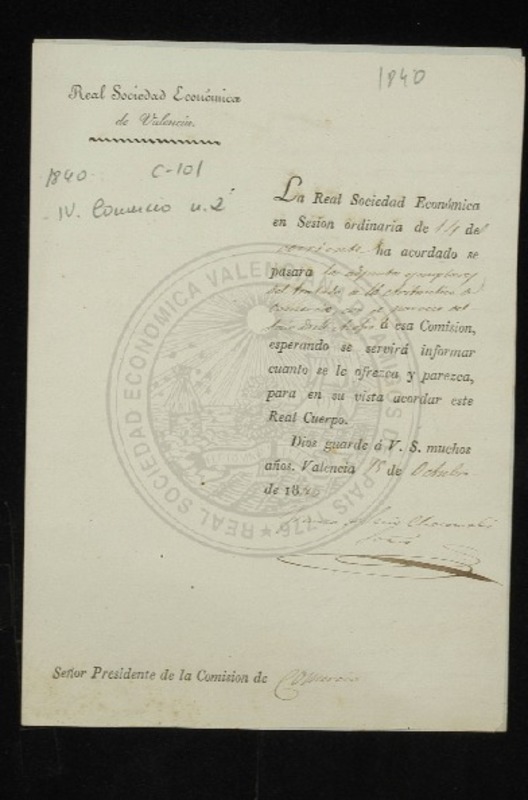 1840
Real Sociedad Económica
de Valencia.
1840. C-101
IV. Comercio n. 2
La Real Sociedad Económica
en Sesion ordinaria de 14 del
corriente ha acordado se
pasara los adjuntos ejemplares
del tratado
á esa Comision,
esperando se servirá informar
cuanto se le ofrezca y parezca,
para en su vista acordar este
Real Cuerpo.
Dios guarde á V. S. muchos
años. Valencia 15 de Octubre
de 1840
Señor Presidente de la Comision de Comercio
REAL SOCIEDAD ECONOMICA VALENCIANA DE AMIGOS DEL PAIS 1776